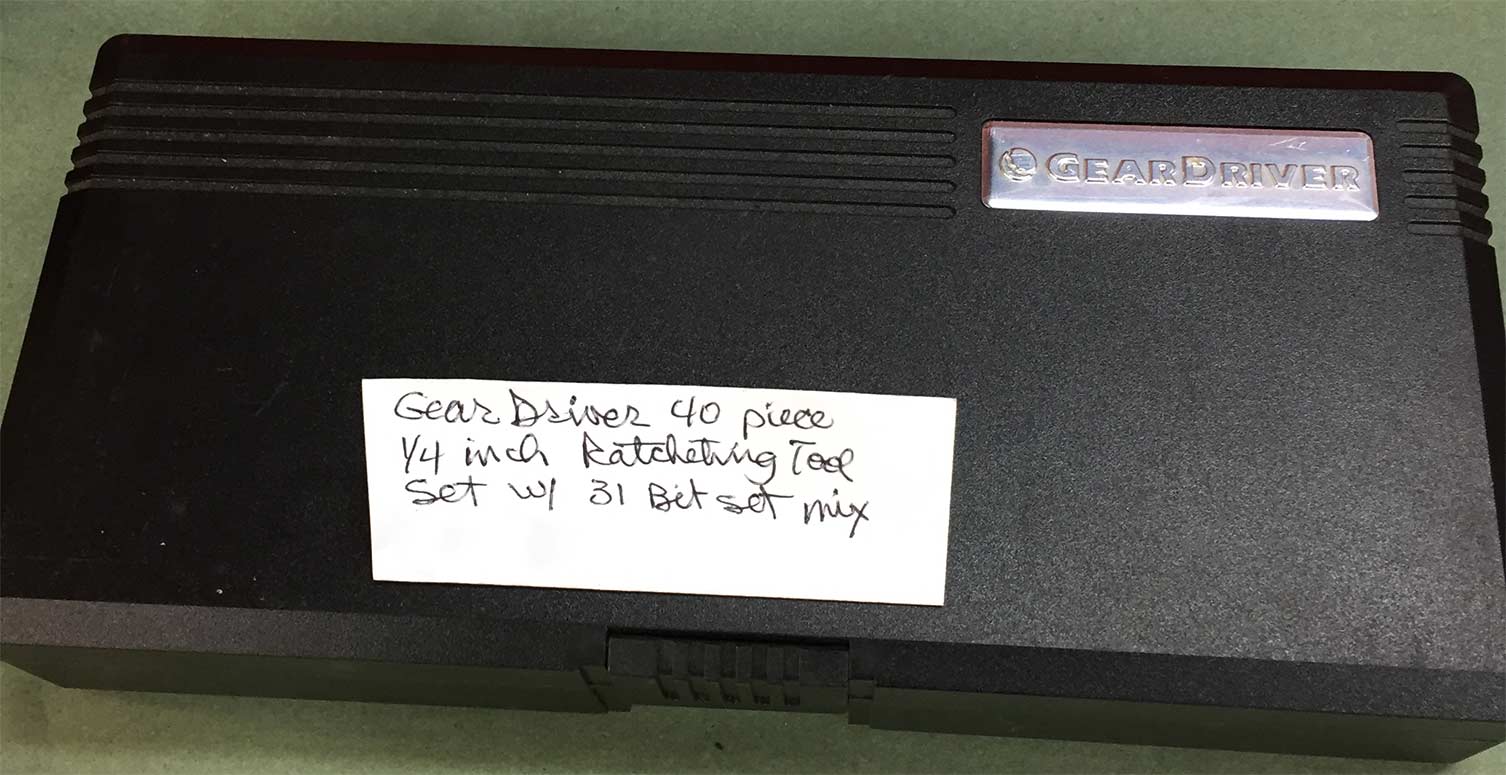 GEARDRIVER
Gear Driver 40 piece
1/4 inch Ratcheting Tool
Set w/ 31 Bit set mix